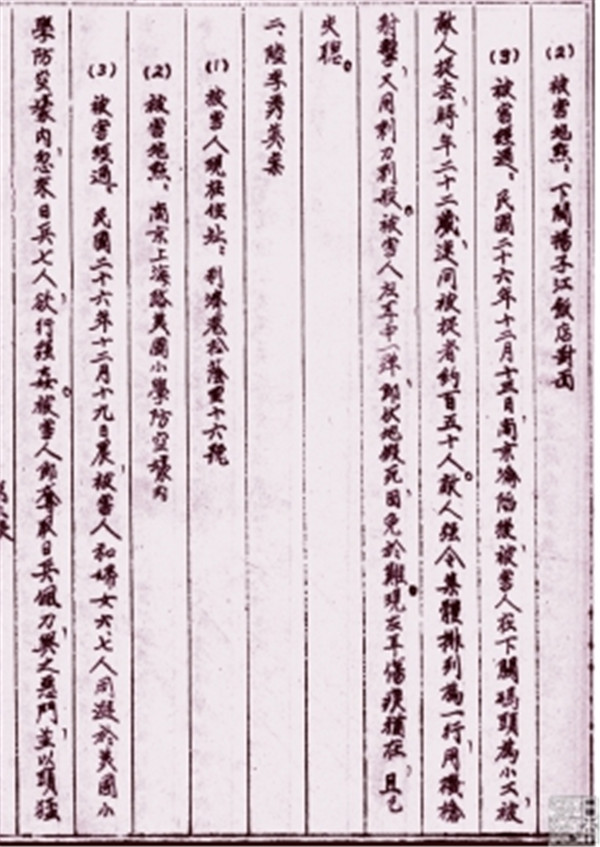 (2) 被害地點、下關揚子江飯店對面
(3) 被害經過、民國二十六年十二月十三日南京淪陷後，被害人在下關碼頭為小工，被
敵人捉去，時年二十二歲，連同被捉者約百五十人。敵人強令集體排列為一行，用機槍
射擊，又用刺刀割殺。被害人左耳中一彈，即伏地假死，因免於難。現左耳傷痕猶在，且已
失聰。
二、陸李秀英案
(1) 被害人現在住址：利濟巷松蔭里十六號
(2) 被害地點、南京上海路美國小學防空壕內
(3) 被害經過、民國二十六年十二月十九日晨，被害人和婦女六七人同避於美國小
學防空壕內，忽來日兵七人，欲行強姦。被害人即奪取日兵佩刀，與之惡鬥，並以頭猛